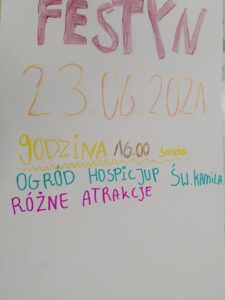 FESTYN
23.06.2021
GODZINA 16.00 środa
OGRÓD HOSPICJUP ŚW. KAMILA
RÓŻNE ATRAKCJE